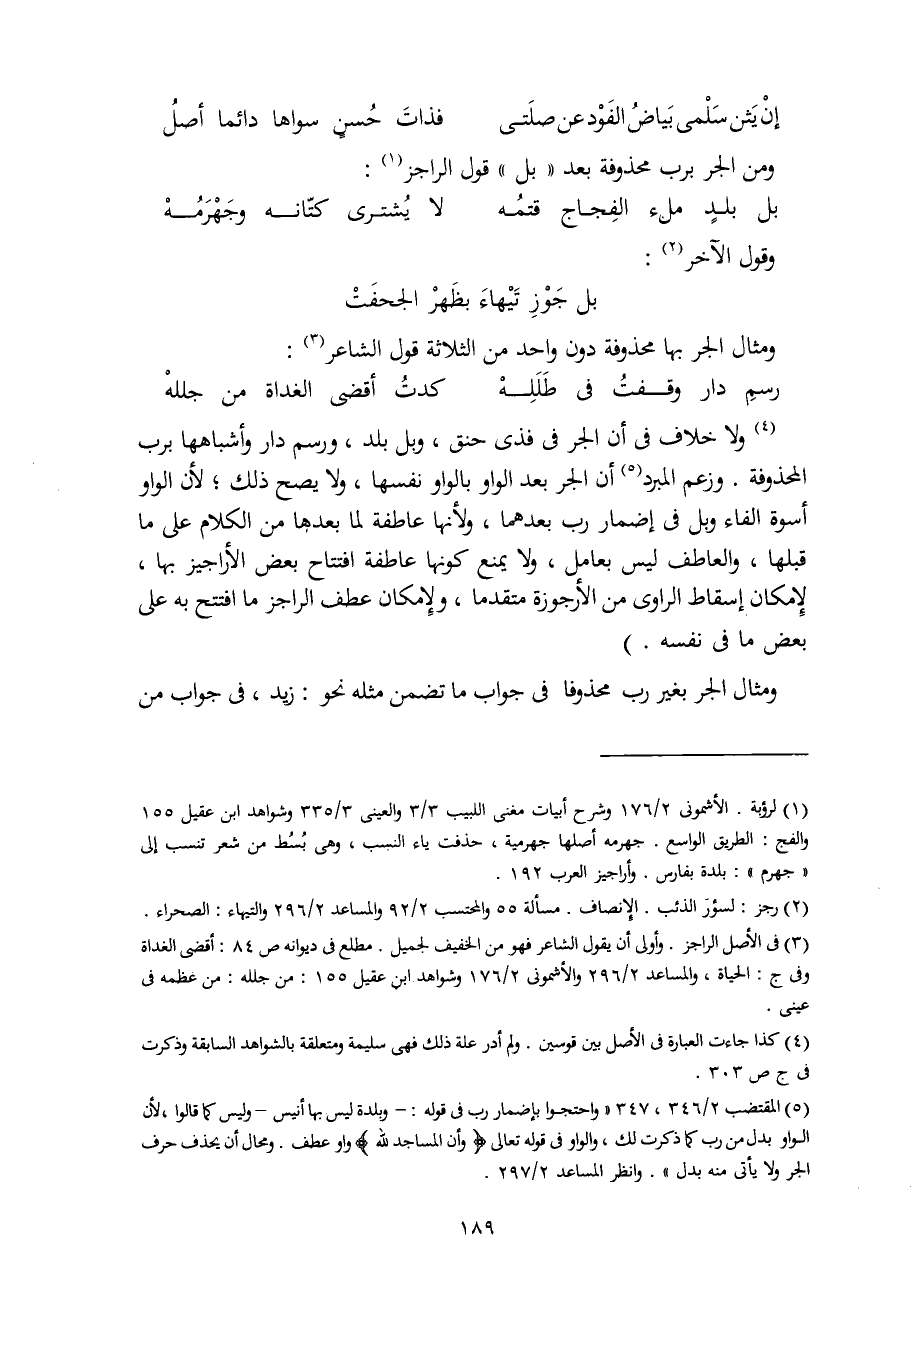 إنْ يَثن سَلْمى بَياضُ الفَوْد عن صلَتى فذاتَ حُسنٍ سواها دائما أصلُ
ومن الجر برب محذوفة بعد « بل » قول الراجز(١) :
بل بلدٍ ملء الفِجاج قتمُه لا يُشترى كتّانه وجَهْرَمُهْ
وقول الآخر(٢) :
بل جَوْزِ تَيْهاءَ بظَهرْ الجحفَتْ
ومثال الجر بها محذوفة دون واحد من الثلاثة قول الشاعر(٣) :
رسمِ دار وقفتُ فى طَلَلِهْ كدتُ أقضى الغداة من جللهْ
(٤) ولا خلاف فى أن الجر فى فذى حنق ، وبل بلد ، ورسم دار وأشباهها برب
المحذوفة . وزعم المبرد(٥) أن الجر بعد الواو بالواو نفسها ، ولا يصح ذلك ؛ لأن الواو
أسوة الفاء وبل فى إضمار رب بعدهما ، ولأنها عاطفة لما بعدها من الكلام على ما
قبلها ، والعاطف ليس بعامل ، ولا يمنع كونها عاطفة افتتاح بعض الأراجيز بها ،
لإمكان إسقاط الراوى من الأرجوزة متقدما ، ولإمكان عطف الراجز ما افتتح به على
بعض ما فى نفسه . )
ومثال الجر بغير رب محذوفا فى جواب ما تضمن مثله نحو : زيد ، فى جواب من
(١) لرؤبة . الأشمونى ١٧٦/٢ وشرح أبيات مغنى اللبيب ٣/٣ والعينى ٣٣٥/٣ وشواهد ابن عقيل ١٥٥
والفج : الطريق الواسع . جهرمه أصلها جهرمية ، حذفت ياء النسب ، وهى بُسُط من شعر تنسب إلى
« جهرم » : بلدة بفارس . وأراجيز العرب ١٩٢ .
(٢) رجز : لسؤرَ الذئب . الإنصاف . مسألة ٥٥ والمحتسب ٩٢/٢ والمساعد ٢٩٦/٢ والتيهاء : الصحراء .
(٣) فى الأصل الراجز . وأولى أن يقول الشاعر فهو من الخفيف لجميل . مطلع فى ديوانه ص ٨٤ : أقضى الغداة
وفى ج : الحياة ، والمساعد ٢٩٦/٢ والأشمونى ١٧٦/٢ وشواهد ابن عقيل ١٥٥ : من جلله : من عظمه فى
عينى .
(٤) كذا جاءت العبارة فى الأصل بين قوسين . ولم أدر علة ذلك فهى سليمة ومتعلقة بالشواهد السابقة وذكرت
فى ج ص ٣٠٣ .
(٥) المقتضب ٣٤٦/٢ ، ٣٤٧ « واحتجوا بإضمار رب فى قوله : – وبلدة ليس بها أنيس – وليس كما قالوا ، لأن
الواو بدل من رب كما ذكرت لك ، والواو فى قوله تعالى ﴿ وأن المساجد لله ﴾ واو عطف . ومحال أن يحذف حرف
الجر ولا يأتى منه بدل » . وانظر المساعد ٢٩٧/٢ .
١٨٩